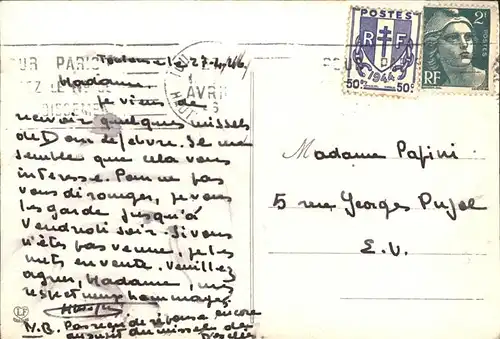 POSTES
RF
1944
50c 50c
2F
POSTES
RF
POUR PARIS
AVRIL
Toulouse le 27.4.46
Madame
Je viens de
recevoir quelques missels
de Dom Lefebvre. Il me
semble que cela vous
interesse. Pour ne pas
vous déranger, je vous
les garde jusqu'à
Vendredi soir. Si vous
n'êtes pas venue, je les
mets en vente. Veuillez
agréer, Madame, mes
respectueux hommages
N.B. Pas reçu de réponse encore
au sujet du missel de
Madame Papini
5 rue Georges Pujol
E.V.